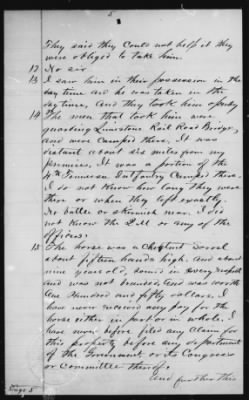 5
They said they could not help it they
were obliged to take him.
12 No sir
13 I saw him in their possession in the
day time and he was taken in the
day time, and they took him openly
14 The men that took him were
guarding Limestone Rail Road Bridge,
and were camped there. It was
distant about six miles from my
premises. It was a portion of the
4th Tennessee Infantry Camped there.
I do not know how long they were
there or when they left exactly,
No battle or skirmish near. I do
not know the Q.M or any of the
officers.
15 The horse was a Chestnut Sorrel
about fifteen hands high, and about
nine years old, sound in every respect
and was not branded, and was worth
One Hundred and fifty dollars. I
have never received any pay for the
horse either in part or in whole. I
have never before filed any claim for
this property before any department
of the Government or its Congress
or Committee thereof.
And further this
Page 5